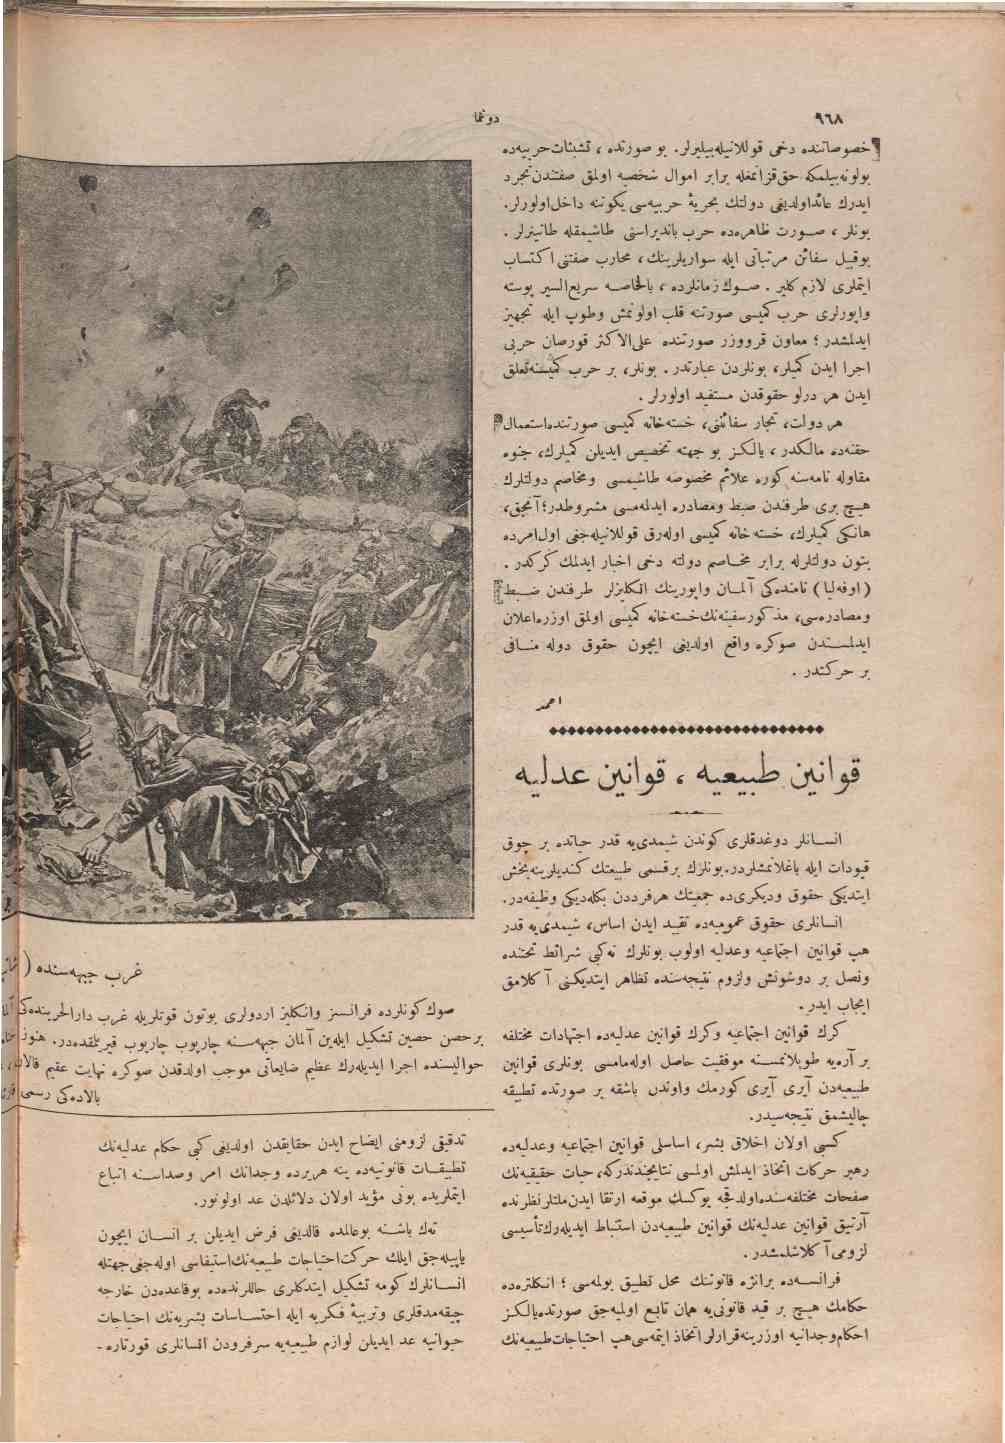 ٩٦٨
دونما
خصوصاتنده دخی قوللانیله‌بیلیرلر. بو صورتده ، تشبثات حربیه‌ده
بولونه‌بیلمکه حق قزانمغله برابر اموال شخصیه اولمق صفتندن تجرد
ایدرك عائد اولدیغی دولتك بحریهٔ حربیه‌سی یکوننه داخل اولورلر.
بونلر ، صورت ظاهره‌ده حرب باندیراسنی طاشیمقله طانینرلر .
بوقبیل سفائن مرتباتی ایله سواریلرینك ، محارب صفتنی اکتساب
ایتملری لازم کلیر . صوك زمانلرده ، بالخاصه سریع السیر پوسته
واپورلری حرب کمیسی صورتنه قلب اولونمش وطوپ ایله تجهیز
ایدلمشدر ؛ معاون قرووزر صورتنده علی الاکثر قورصان حربی
اجرا ایدن کمیلر، بونلردن عبارتدر . بونلر، بر حرب کمیسنه تعلق
ایدن هر درلو حقوقدن مستفید اولورلر .
هر دولت، تجار سفائننی، خسته‌خانه کمیسی صورتنده استعمال
حقنه‌ده مالکدر ، یالکز بو جهته تخصیص ایدیلن کمیلرك، جنوه
مقاوله نامه‌سنه کوره علائم مخصوصه طاشیمسی ومخاصم دولتلرك
هیچ بری طرفندن ضبط ومصادره ایدلمه‌مسی مشروطدر؛ آنجق،
هانکی کمیلرك، خسته خانه کمیسی اوله‌رق قوللانیله‌جغی اول امرده
بتون دولتلرله برابر مخاصم دولته دخی اخبار ایدلمك کرکدر .
( اوفه‌لیا ) نامنده‌کی آلمان واپورینك انکلیزلر طرفندن ضبط
ومصادره‌سی، مذکور سفینه‌نك خسته‌خانه کمیسی اولمق اوزره اعلان
ایدلمسندن صوکره واقع اولدیغی ایچون حقوق دوله منافی
بر حرکتدر .
احمد
قوانین طبیعیه ، قوانین عدلیه
انسانلر دوغدقلری کوندن شیمدی‌یه قدر حیاتده بر چوق
قیودات ایله باغلانمشلردر. بونلرك بر قسمی طبیعتك کندیلرینه بخش
ایتدیکی حقوق ودیکری‌ده جمعیتك هر فرددن بکله‌دیکی وظیفه‌در.
انسانلری حقوق عمومیه‌ده تقیید ایدن اساس، شیمدی‌یه قدر
هپ قوانین اجتماعیه وعدلیه اولوب بونلرك نه‌کبی شرائط تحتنده
ونصل بر دوشونش ولزوم نتیجه‌سنده تظاهر ایتدیکنی آکلامق
ایجاب ایدر .
کرك قوانین اجتماعیه وکرك قوانین عدلیه‌ده اجتهادات مختلفه
بر آره‌یه طوپلانمسنه موفقیت حاصل اوله‌مامسی بونلری قوانین
طبیعیه‌دن آیری آیری کورمك واوندن باشقه بر صورتده تطبیقه
چالیشمق نتیجه‌سیدر.
کسبی اولان اخلاق بشر، اساسلی قوانین اجتماعیه وعدلیه‌ده
رهبر حرکات اتخاذ ایدلمش اولمسی نتایجندندرکه، حیات حقیقیه‌نك
صفحات مختلفه‌سنده اولدقجه یوکسك موقعه ارتقا ایدن ملتلر نظرنده
آرتیق قوانین عدلیه‌نك قوانین طبیعیه‌دن استنباط ایدیله‌رك تأسیسی
لزومی آکلاشلمشدر .
فرانسه‌ده برانژه قانوننك محل تطبیق بولمه‌سی ؛ انکلتره‌ده
حکامك هیچ بر قید قانونی‌یه همان تابع اولمیه‌جق صورتده یالکز
احکام وجدانیه اوزرینه قرارلر اتخاذ ایتمه‌سی هپ احتیاجات طبیعیه‌نك
غرب جبهه‌سنده (
صوك کونلرده فرانسز وانکلیز اردولری بوتون قوتلریله غرب دارالحربنده‌کی
برحصن حصین تشکیل ایله‌ین آلمان جبهه‌سنه چارپوب چارپوب قیریلمقده‌در. هنوز
حوالیسنده اجرا ایدیله‌رك عظیم ضایعاتی موجب اولدقدن صوکره نهایت عقیم
بالاده‌کی رسمی
تدقیقی لزومنی ایضاح ایدن حقایقدن اولدیغی کبی حکام عدلیه‌نك
تطبیقات قانونیه‌ده ینه هریرده وجدانك امر وصداسنه اتباع
ایتملریده بونی مؤید اولان دلائلدن عد اولونور.
تك باشنه بوعالمده قالدیغی فرض ایدیلن بر انسان ایچون
یاپیله‌جق ایلك حرکت احتیاجات طبیعیه‌نك استیفاسی اوله‌جغی جهتله
انسانلرك کومه تشکیل ایتدکلری حاللرنده‌ده بوقاعده‌دن خارجه
چیقه‌مدقلری وتربیهٔ فکریه ایله احتساسات بشریه‌نك احتیاجات
حیوانیه عد ایدیلن لوازم طبیعیه‌یه سرفرودن انسانلری قورتاره-